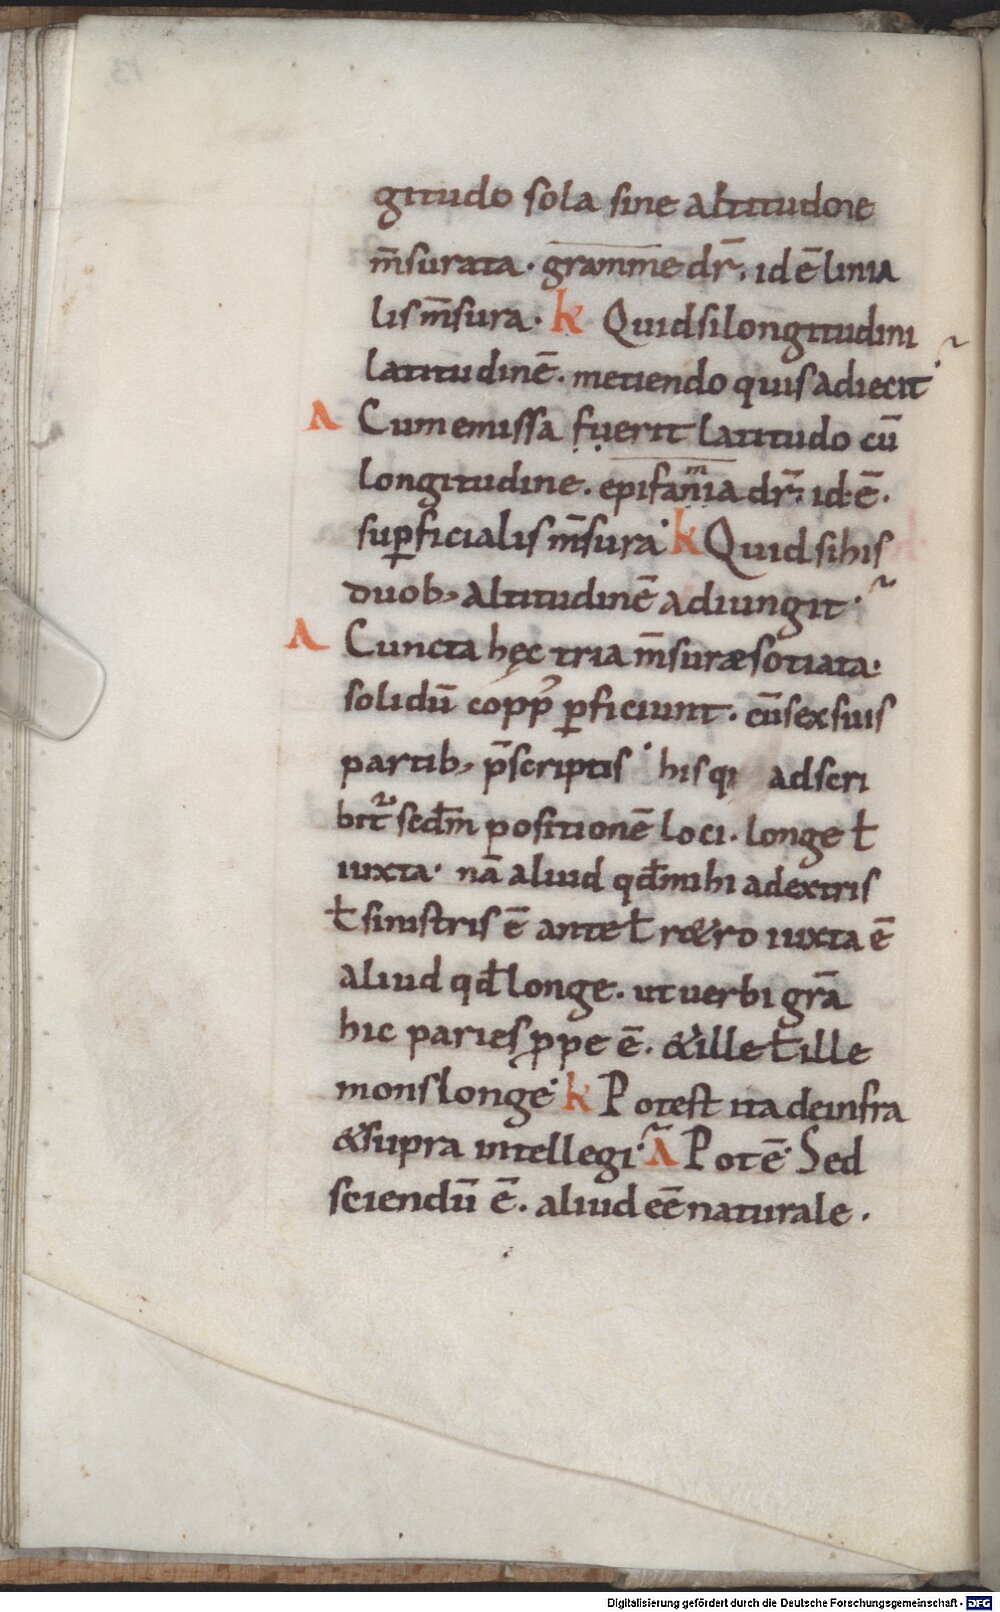 gitudo sola sine altitudine
m̄surata · gramme dr̄ . id ē linia
lis m̄sura · k Quid si longitudini
latitudinē . metiendo quis adiecit ·~
Λ Cum emissa fuerit latitudo cū
longitudine . epifania dr̄ . id · ē .
suꝑficialis m̄sura · k Quid si his
duob, altitudinē adiungit ·~
Λ Cuncta hęc tria m̄suræ sotiata ·
solidū copp̄ ꝑficiunt . cū sex suis
partib, p̄scriptis · his qi adscri
bit᷑ sedm̄ positionē loci . longe ƚ
iuxta · nā aliud qđ mihi adextris
ƚ sinistris ē ante ƚ r&ro iuxta ē
aliud qđ longe . ut uerbi grā
hic paries ꝓpe ē . & ille ƚ ille
mons longe · k Potest ita de infra
& supra intellegi ·~ Λ Potē · Sed
sciendū ē . aliud eē naturale .
Digitalisierung gefördert durch die Deutsche Forschungsgemeinschaft - DFG